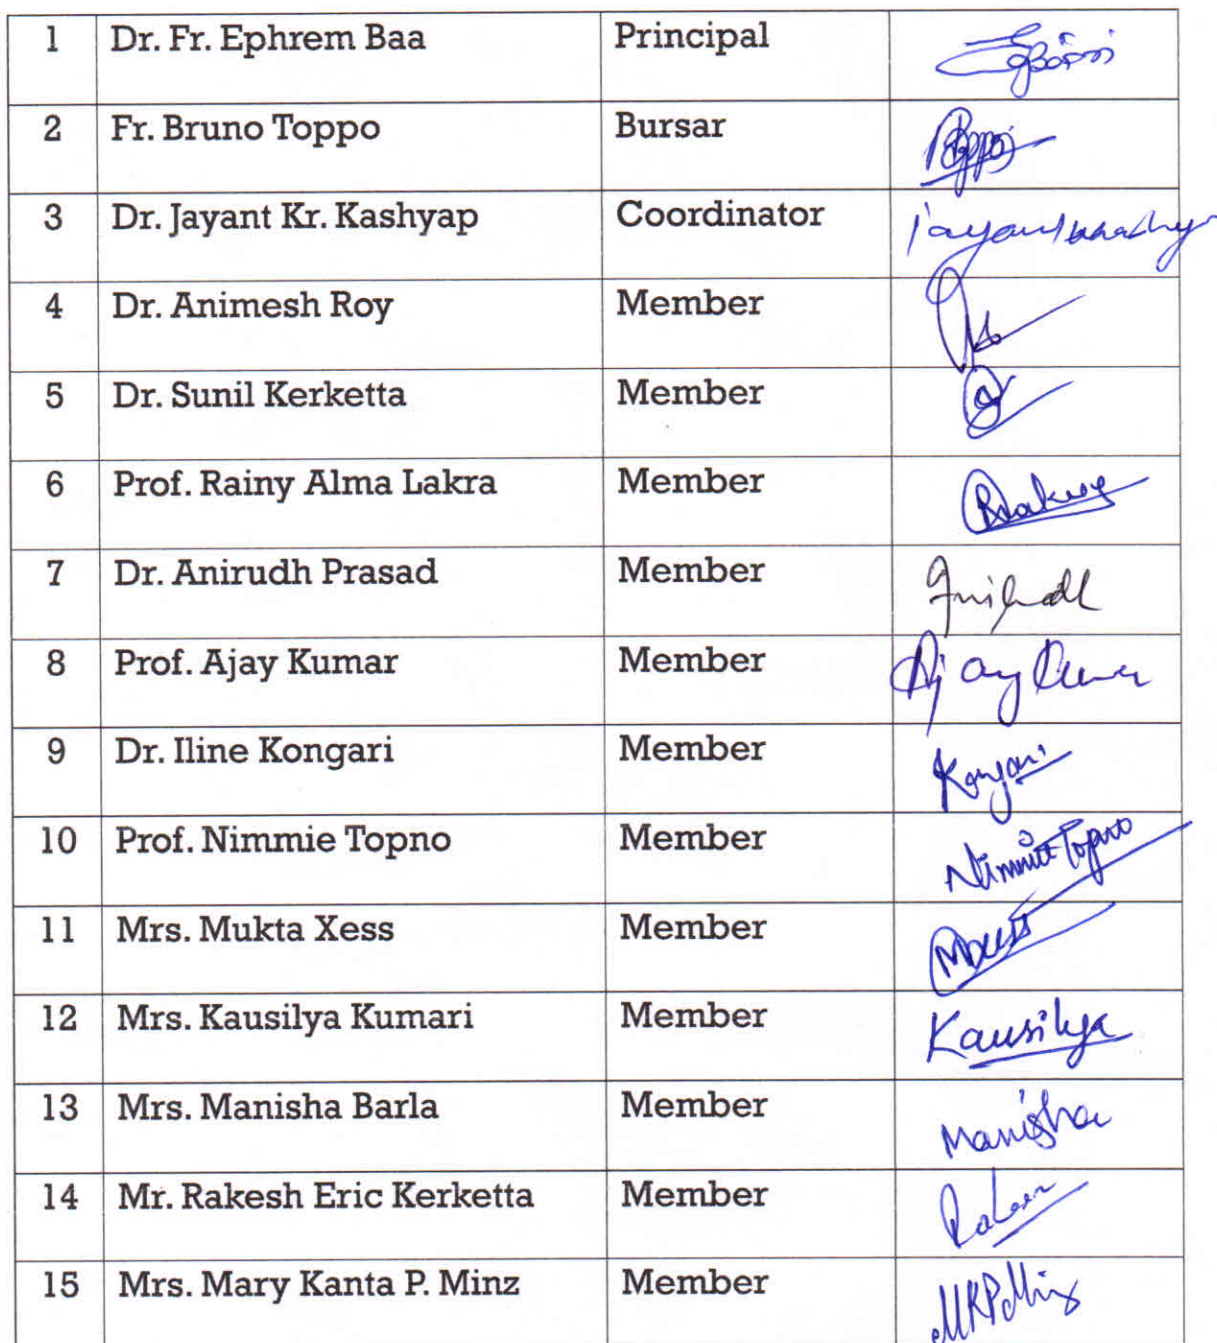 1 Dr. Fr. Ephrem Baa Principal
2 Fr. Bruno Toppo Bursar
3 Dr. Jayant Kr. Kashyap Coordinator
4 Dr. Animesh Roy Member
5 Dr. Sunil Kerketta Member
6 Prof. Rainy Alma Lakra Member
7 Dr. Anirudh Prasad Member Anirudh
8 Prof. Ajay Kumar Member Ajay Kumar
9 Dr. Iline Kongari Member Kongari
10 Prof. Nimmie Topno Member Nimmie Topno
11 Mrs. Mukta Xess Member
12 Mrs. Kausilya Kumari Member Kausilya
13 Mrs. Manisha Barla Member Manisha
14 Mr. Rakesh Eric Kerketta Member
15 Mrs. Mary Kanta P. Minz Member MKPMinz